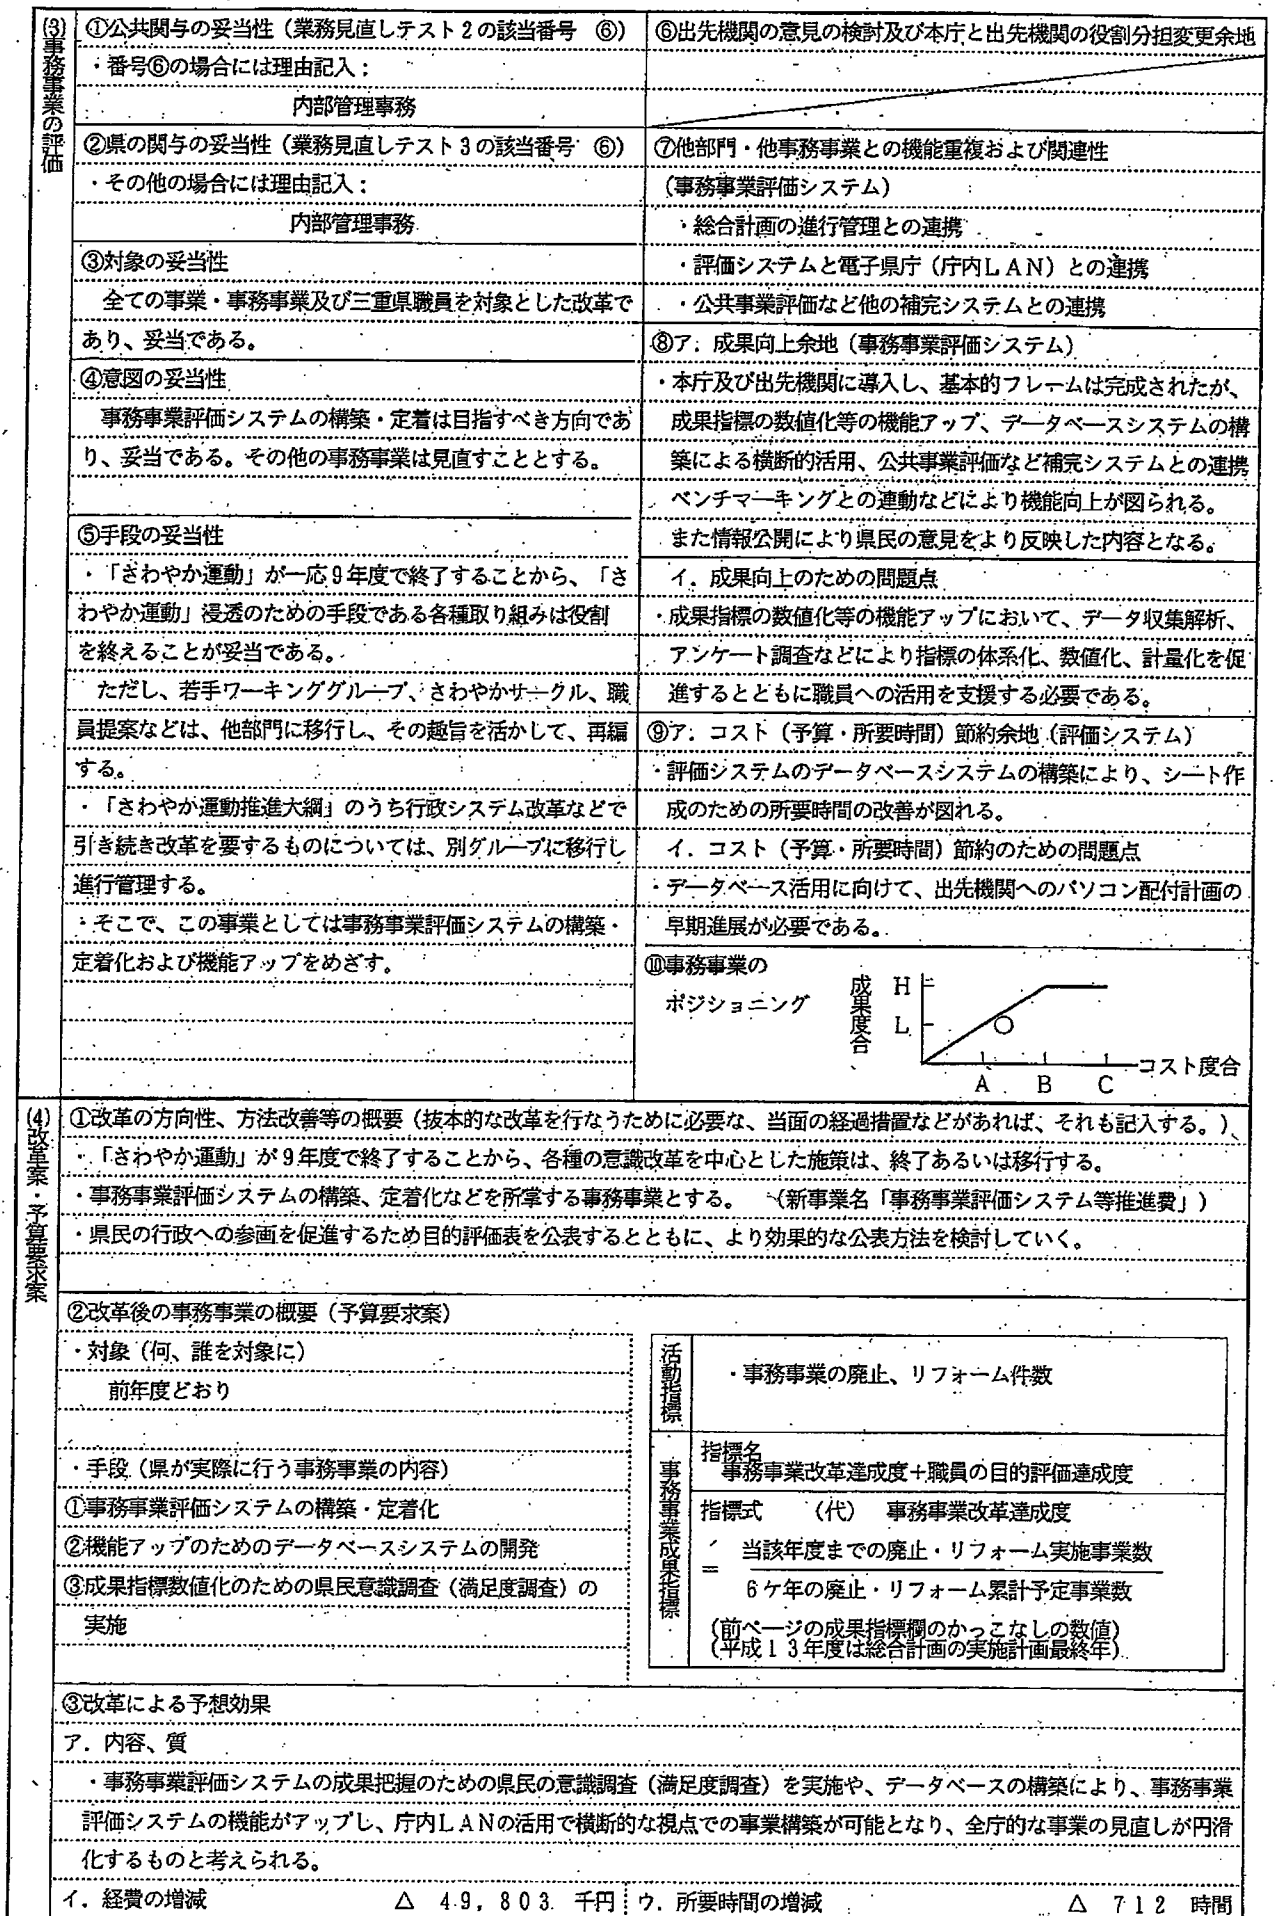 (3)事務事業の評価
①公共関与の妥当性（業務見直しテスト2の該当番号　⑥）
・番号⑥の場合には理由記入：
内部管理事務
②県の関与の妥当性（業務見直しテスト3の該当番号　⑥）
・その他の場合には理由記入：
内部管理事務
③対象の妥当性
全ての事業・事務事業及び三重県職員を対象とした改革で
あり、妥当である。
④意図の妥当性
事務事業評価システムの構築・定着は目指すべき方向であ
り、妥当である。その他の事務事業は見直すこととする。
⑤手段の妥当性
・「さわやか運動」が一応9年度で終了することから、「さ
わやか運動」浸透のための手段である各種取り組みは役割
を終えることが妥当である。
ただし、若手ワーキンググループ、さわやかサークル、職
員提案などは、他部門に移行し、その趣旨を活かして、再編
する。
・「さわやか運動推進大綱」のうち行政システム改革などで
引き続き改革を要するものについては、別グループに移行し
進行管理する。
・そこで、この事業としては事務事業評価システムの構築・
定着化および機能アップをめざす。
⑥出先機関の意見の検討及び本庁と出先機関の役割分担変更余地
⑦他部門・他事務事業との機能重複および関連性
（事務事業評価システム）
・総合計画の進行管理との連携
・評価システムと電子県庁（庁内LAN）との連携
・公共事業評価など他の補完システムとの連携
⑧ア．成果向上余地（事務事業評価システム）
・本庁及び出先機関に導入し、基本的フレームは完成されたが、
成果指標の数値化等の機能アップ、データベースシステムの構
築による横断的活用、公共事業評価など補完システムとの連携
ベンチマーキングとの連動などにより機能向上が図られる。
また情報公開により県民の意見をより反映した内容となる。
イ．成果向上のための問題点
・成果指標の数値化等の機能アップにおいて、データ収集解析、
アンケート調査などにより指標の体系化、数値化、計量化を促
進するとともに職員への活用を支援する必要である。
⑨ア．コスト（予算・所要時間）節約余地（評価システム）
・評価システムのデータベースシステムの構築により、シート作
成のための所要時間の改善が図れる。
イ．コスト（予算・所要時間）節約のための問題点
・データベース活用に向けて、出先機関へのパソコン配付計画の
早期進展が必要である。
⑩事務事業の
ポジショニング
成果度合
H
L
A B C
コスト度合
(4)改革案・予算要求案
①改革の方向性、方法改善等の概要（抜本的な改革を行なうために必要な、当面の経過措置などがあれば、それも記入する。）
・「さわやか運動」が9年度で終了することから、各種の意識改革を中心とした施策は、終了あるいは移行する。
・事務事業評価システムの構築、定着化などを所掌する事務事業とする。　（新事業名「事務事業評価システム等推進費」）
・県民の行政への参画を促進するため目的評価表を公表するとともに、より効果的な公表方法を検討していく。
②改革後の事務事業の概要（予算要求案）
・対象（何、誰を対象に）
前年度どおり
・手段（県が実際に行う事務事業の内容）
①事務事業評価システムの構築・定着化
②機能アップのためのデータベースシステムの開発
③成果指標数値化のための県民意識調査（満足度調査）の
実施
活動指標
・事務事業の廃止、リフォーム件数
事務事業成果指標
指標名
事務事業改革達成度＋職員の目的評価達成度
指標式　（代）　事務事業改革達成度
＝ 当該年度までの廃止・リフォーム実施事業数
6ケ年の廃止・リフォーム累計予定事業数
（前ページの成果指標欄のかっこなしの数値）
（平成13年度は総合計画の実施計画最終年）
③改革による予想効果
ア．内容、質
・事務事業評価システムの成果把握のための県民の意識調査（満足度調査）を実施や、データベースの構築により、事務事業
評価システムの機能がアップし、庁内LANの活用で横断的な視点での事業構築が可能となり、全庁的な事業の見直しが円滑
化するものと考えられる。
イ．経費の増減　△ 49,803 千円
ウ．所要時間の増減　△ 712 時間